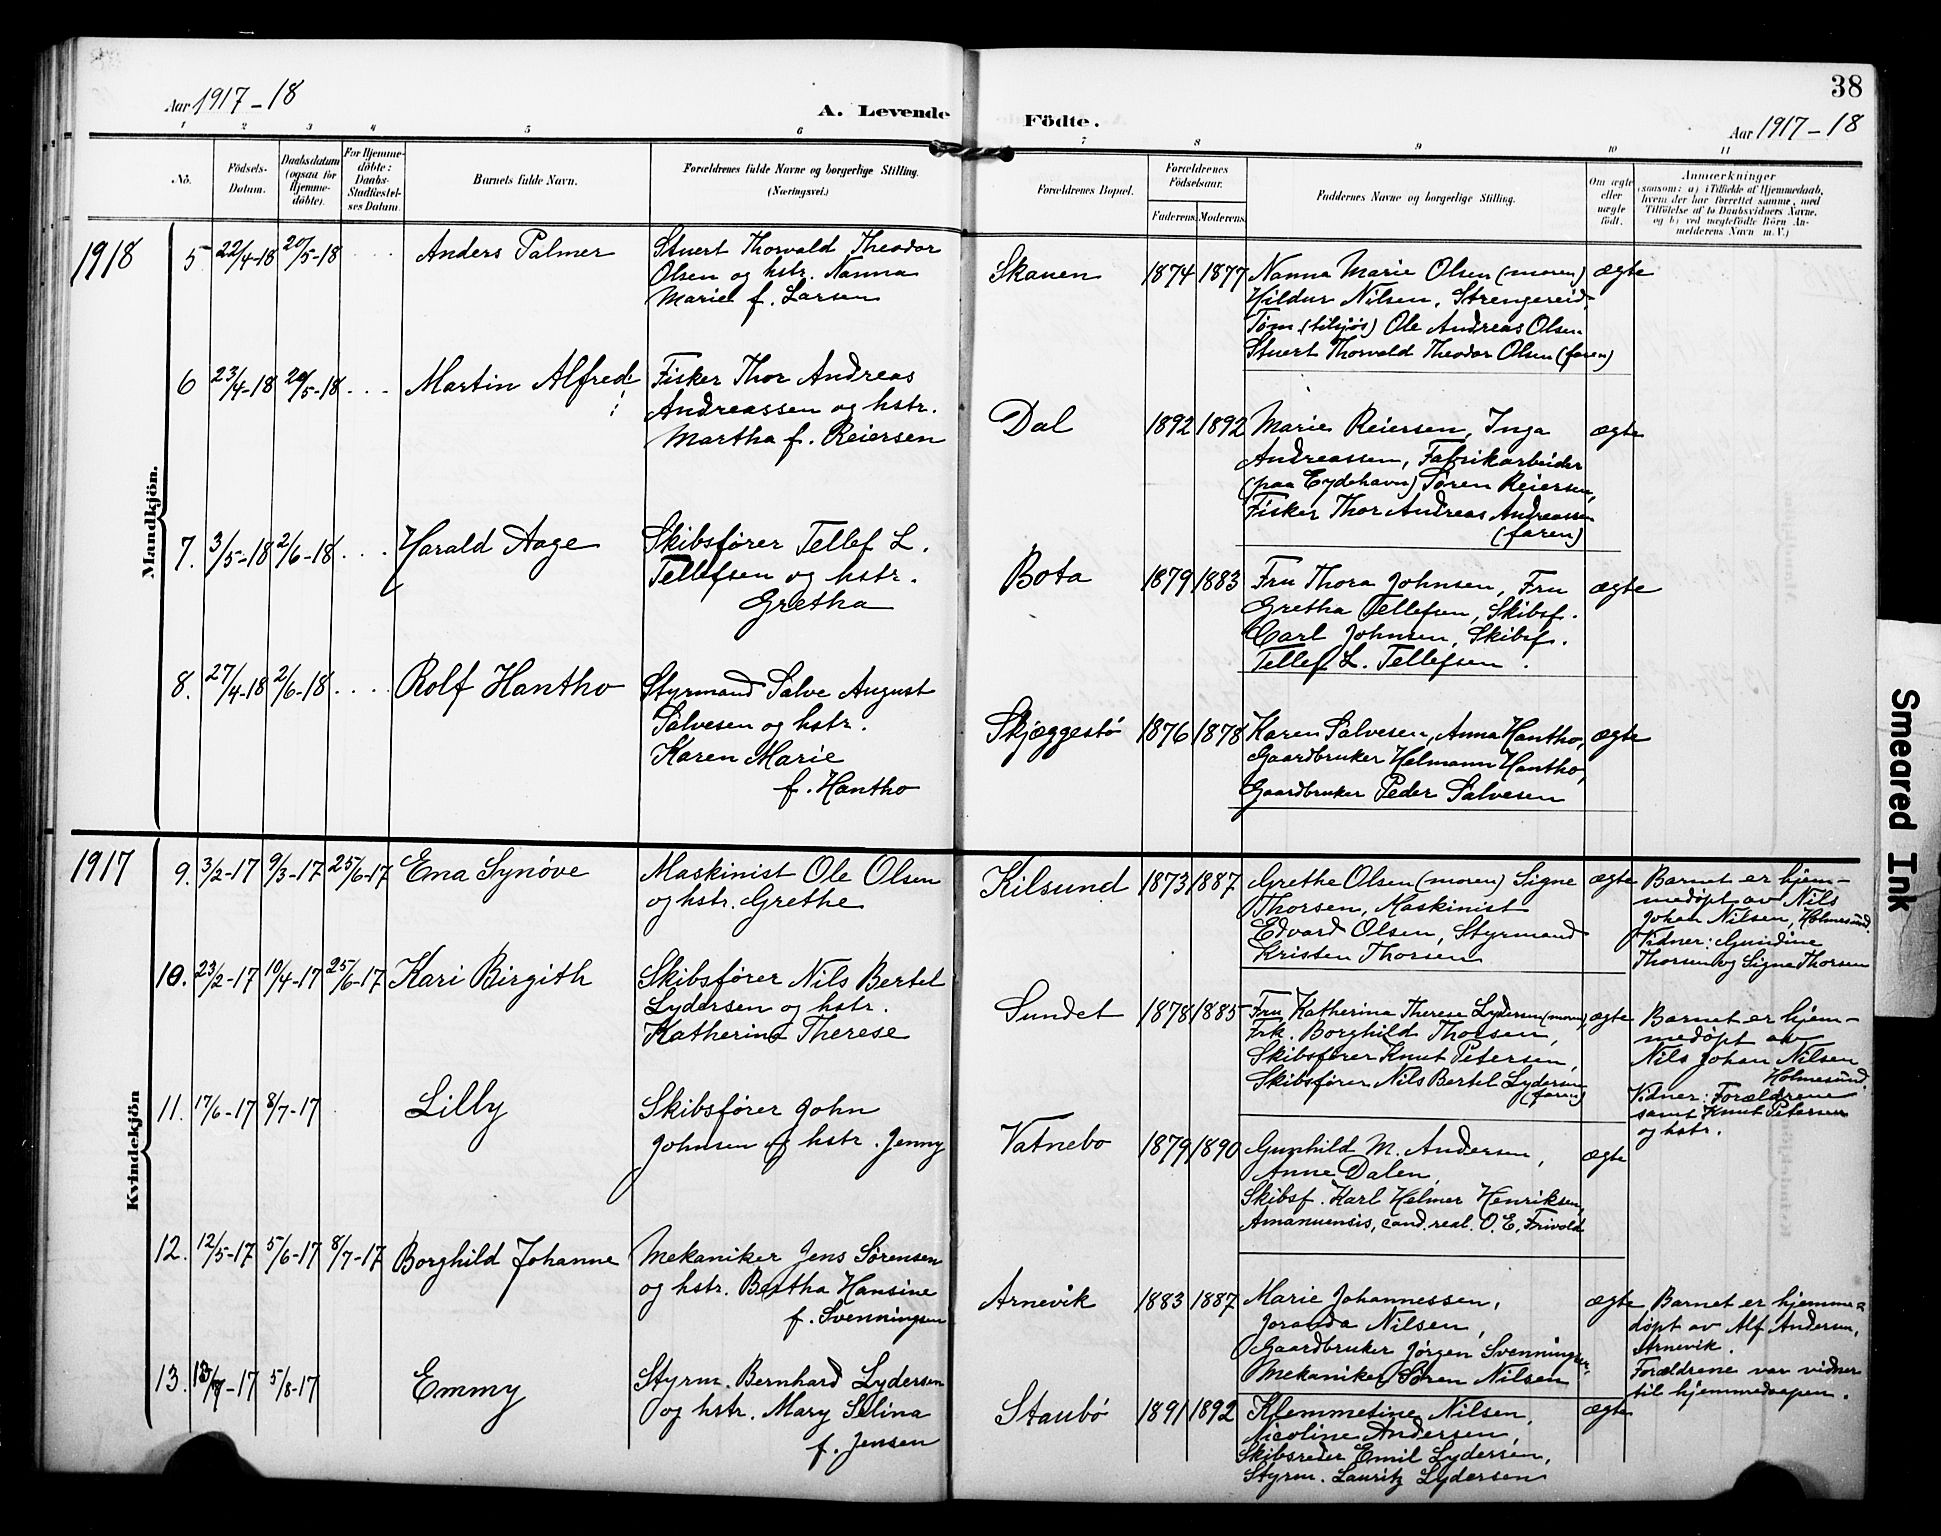 38
Aar 1917-18
A. Levende
Födte.
Aar 1917-18
1 2 3 4 5 6 7 8 9 10 11
No.
Födsels-
Datum.
Daabsdatum
(ogsaa for
Hjemme-
döbte).
For Hjemme-
döbte:
Daabs-
Stadfæstel-
ses Datum.
Barnets fulde Navn.
Forældrenes fulde Navne og borgerlige Stilling.
(Næringsvei.)
Forældrenes Bopæl.
Forældrenes
Födselsaar.
Faderens. Moderens.
Faddernes Navne og borgerlige Stilling.
Om ægte
eller
uægte
födt.
Anmærkninger
(saasom: a) i Tilfælde af Hjemmedaab,
hvem der har forrettet samme, med
Tilföielse af to Daabsvidners Navne,
og b) ved uægtefödte Börn An-
melderens Navn m. V.)
Mandkjön.
1918
5 22/4-18 20/5-18 Anders Palmer
Stuert Thorvald Theodor
Olsen og hstr. Nanna
Marie f. Larsen
Skauen 1874 1877
Nanna Marie Olsen (moren)
Hildur Nilsen, Strengereid,
Tøm. (tilsjøs) Ole Andreas Olsen
Stuert Thorvald Theodor Olsen (faren)
ægte
6 23/4-18 20/5-18 Martin Alfred
Fisker Thor Andreas
Andreassen og hstr.
Martha f. Reiersen
Dal 1892 1892
Marie Reiersen, Inga
Andreassen, Fabrikarbeider
(paa Eydehavn) Søren Reiersen,
Fisker Thor Andreas Andreassen
(faren)
ægte
7. 3/5-18 2/6-18 Harald Aage
Skibsfører Tellef L.
Tellefsen og hstr.
Gretha
Bota 1879 1883
Fru Thora Johnsen, Fru
Gretha Tellefsen, Skibsf.
Carl Johnsen, Skibsf.
Tellef L. Tellefsen.
ægte
8. 27/4-18 2/6-18 Rolf Hantho
Styrmand Salve August
Salvesen og hstr.
Karen Marie
f. Hantho
Skjæggestø 1876 1878
Karen Salvesen, Anna Hantho,
Gaardbruker Helmann Hantho,
Gaardbruker Peder Salvesen
ægte
Kvindekjön
1917
9. 3/2-17 9/3-17 25/6-17 Ena Synøve
Maskinist Ole Olsen
og hstr. Grethe
Kilsund 1873 1887
Grethe Olsen (moren) Signe
Thorsen, Maskinist
Edvard Olsen, Styrmand
Kristen Thorsen
ægte
Barnet er hjem-
medøpt av Nils
Johan Nilsen, Holmesund.
Vidner: Gundine
Thorsen og Signe Thorsen
10. 23/2-17 10/4-17 25/6-17 Kari Birgith
Skibsfører Nils Bertel
Lydersen og hstr.
Katherina Therese
Sundet 1878 1885
Fru Katherina Therese Lydersen (moren)
Frk. Borghild Thorsen,
Skibsfører Knut Petersen,
Skibsfører Nils Bertel Lydersen
(faren)
ægte
Barnet er hjem-
medøpt av
Nils Johan Nilsen
Holmesund.
Vidner: Forældrene
samt Knut Petersen
og hstr.
11. 17/6-17 8/7-17 Lilly
Skibsfører John
Johnsen og hstr. Jenny
Vatnebo 1879 1890
Gunhild M. Andersen,
Anne Dalen,
Skibsf. Karl Helmer Henriksen,
Amanuensis, cand. real. O. E. Frivold
ægte
12. 12/5-17 5/6-17 8/7-17 Borghild Johanne
Mekaniker Jens Sørensen
og hstr. Bertha Hansine
f. Svenningsen
Arnevik 1883 1887
Marie Johannessen,
Joranda Nilsen,
Gaardbruker Jørgen Svenningsen
Mekaniker Søren Nilsen
ægte
Barnet er hjemme-
døpt av Alf Andersen,
Arnevik.
Forældrene var vidner
til hjemmedaapen.
13. 5/8-17 Emmy
Styrm. Bernhard Lydersen
og hstr. Mary Selina
f. Jensen
Staubø 1891 1892
Klemmetine Nilsen,
Nicoline Andersen,
Skibsreder Emil Lydersen,
Styrm. Lauritz Lydersen
ægte
Smeared Ink